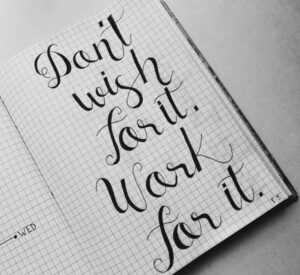 Don't
wish
for it.
Work
for it.
WED